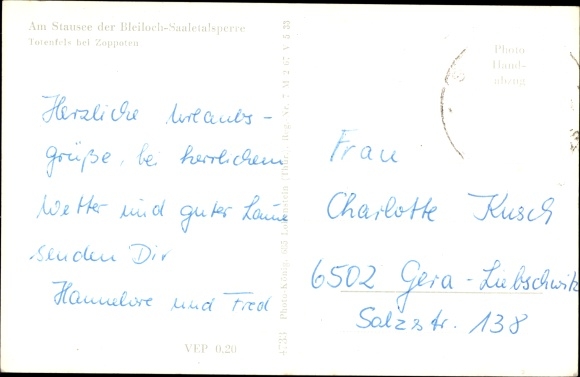 Am Stausee der Bleiloch-Saaletalsperre
Totenfels bei Zoppoten
Herzliche Urlaubs-
grüße, bei herrlichem
Wetter und guter Laune
senden Dir
Hannelore und Fred
VEP 0,20
4733 Photo-König, 685 Lobenstein (Thür.) Reg.-Nr. 7 M 2 67 V 8 33
Photo
Hand-
abzug
Frau
Charlotte Kusch
6502 Gera - Liebschwitz
Salzstr. 138